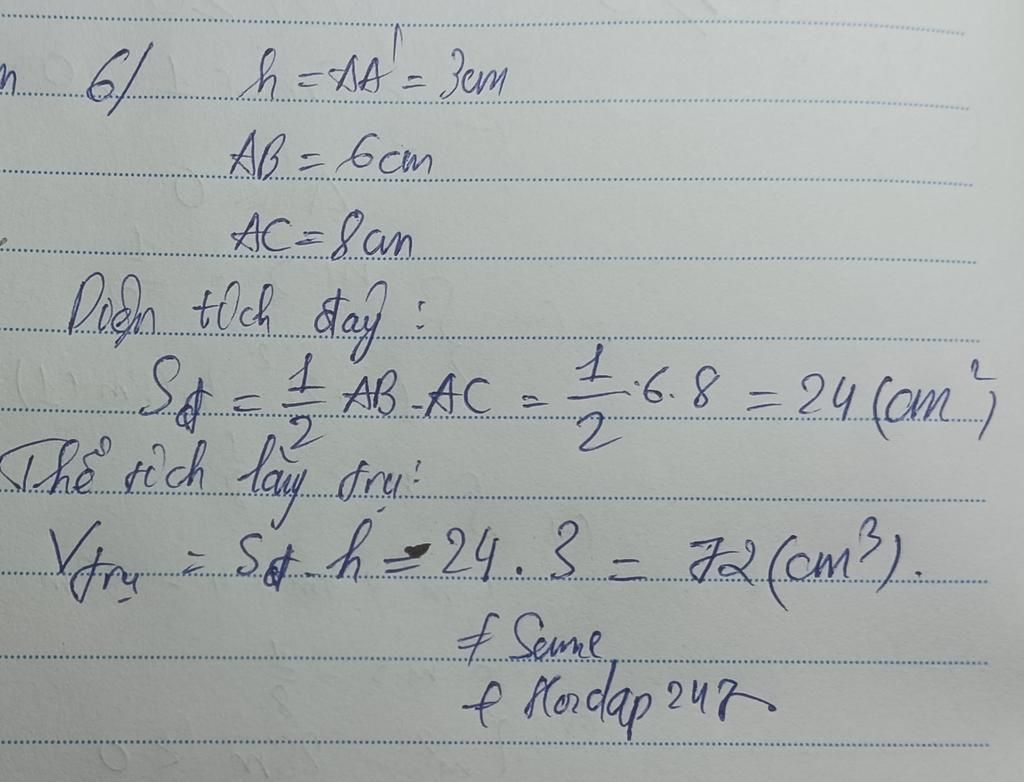 6/ h = AA' = 3cm
AB = 6cm
AC = 8cm
Diện tích đáy :
Sđ = 1/2 AB . AC = 1/2 . 6 . 8 = 24 (cm²)
Thể tích lăng trụ :
Vtrụ = Sđ . h = 24 . 3 = 72 (cm³).
≠ Seme
≠ Hoidap 247